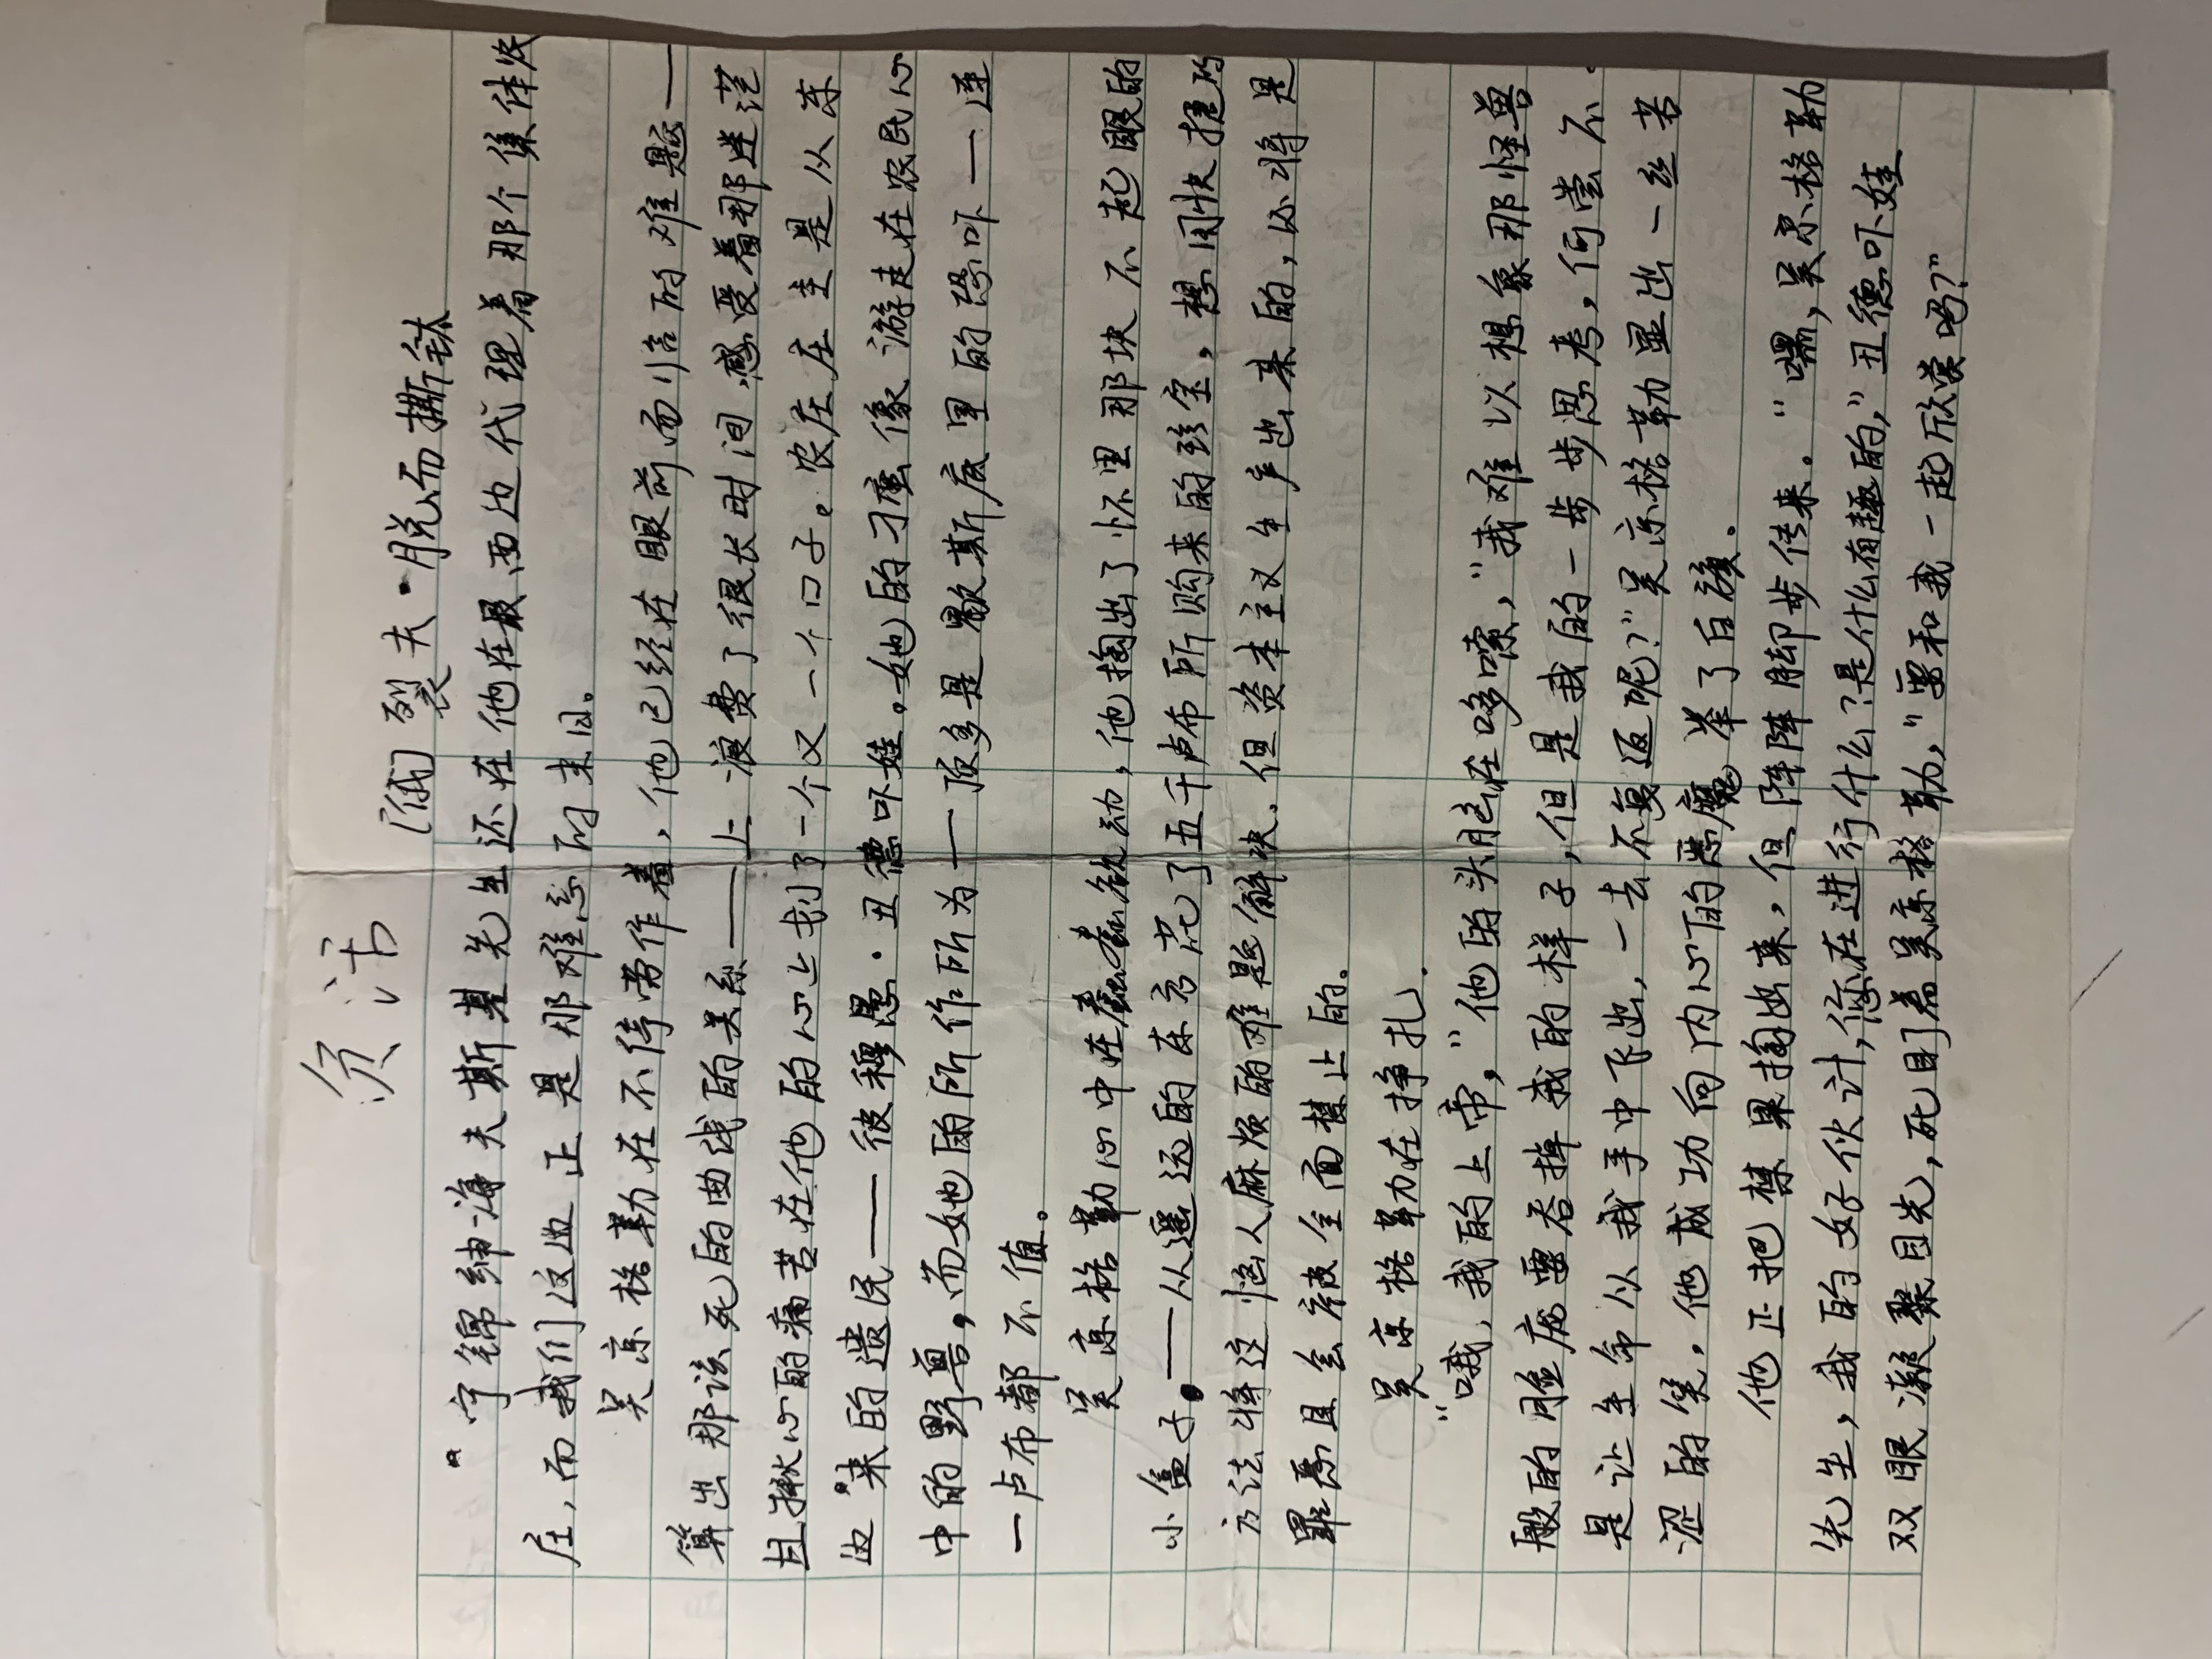 负活
[俄]裂夫·脱而撕钛
宁锦绅海夫斯基先生还在他在最西边代理着那个集体农
庄，而我们这边正是那难忘的末日。
吴京格勒在不停劳作着，他已经在眼前面临的难题——
算出那该死的曲线的关系——上浪费了很长时间，感受着那迷茫
且揪心的痛苦在他的心上划了一个又一个口子。农庄庄主是从东
边来的遗民——彼穆愚·丑德吓娃。她的刁蛮像游走在农民心
中的野兽，而她的所作所为—顶多是歇斯底里的恐吓—连
一卢布都不值。
吴京格勒心中在蠢蠢欲动，他掏出了怀里那块不起眼的
小盒子。——从遥远的东方花了五千卢布所购来的珍宝，想用快捷的
方法将这恼人麻烦的难题解决。但资本主义生产出来的，必将是
罪恶且会被全面禁止的。
吴京格勒在挣扎.
“哦，我的上帝，”他的头脑在哆嗦，“我难以想象那怪兽
般的脸庞要吞掉我的样子，但是我的一步步思考，何尝不
是让生命从我手中飞出，一去不复返呢？”吴京格勒显出一丝苦
涩的笑，他成功向内心的恶魔举了白旗。
他正把禁果掏出来，但阵阵脚步传来。“嘿，吴京格勒
先生，我的好伙计，您在进行什么？是什么有趣的，”丑德吓娃
双眼凝聚目光，死盯着吴京格勒，“要和我一起欣赏吗？”